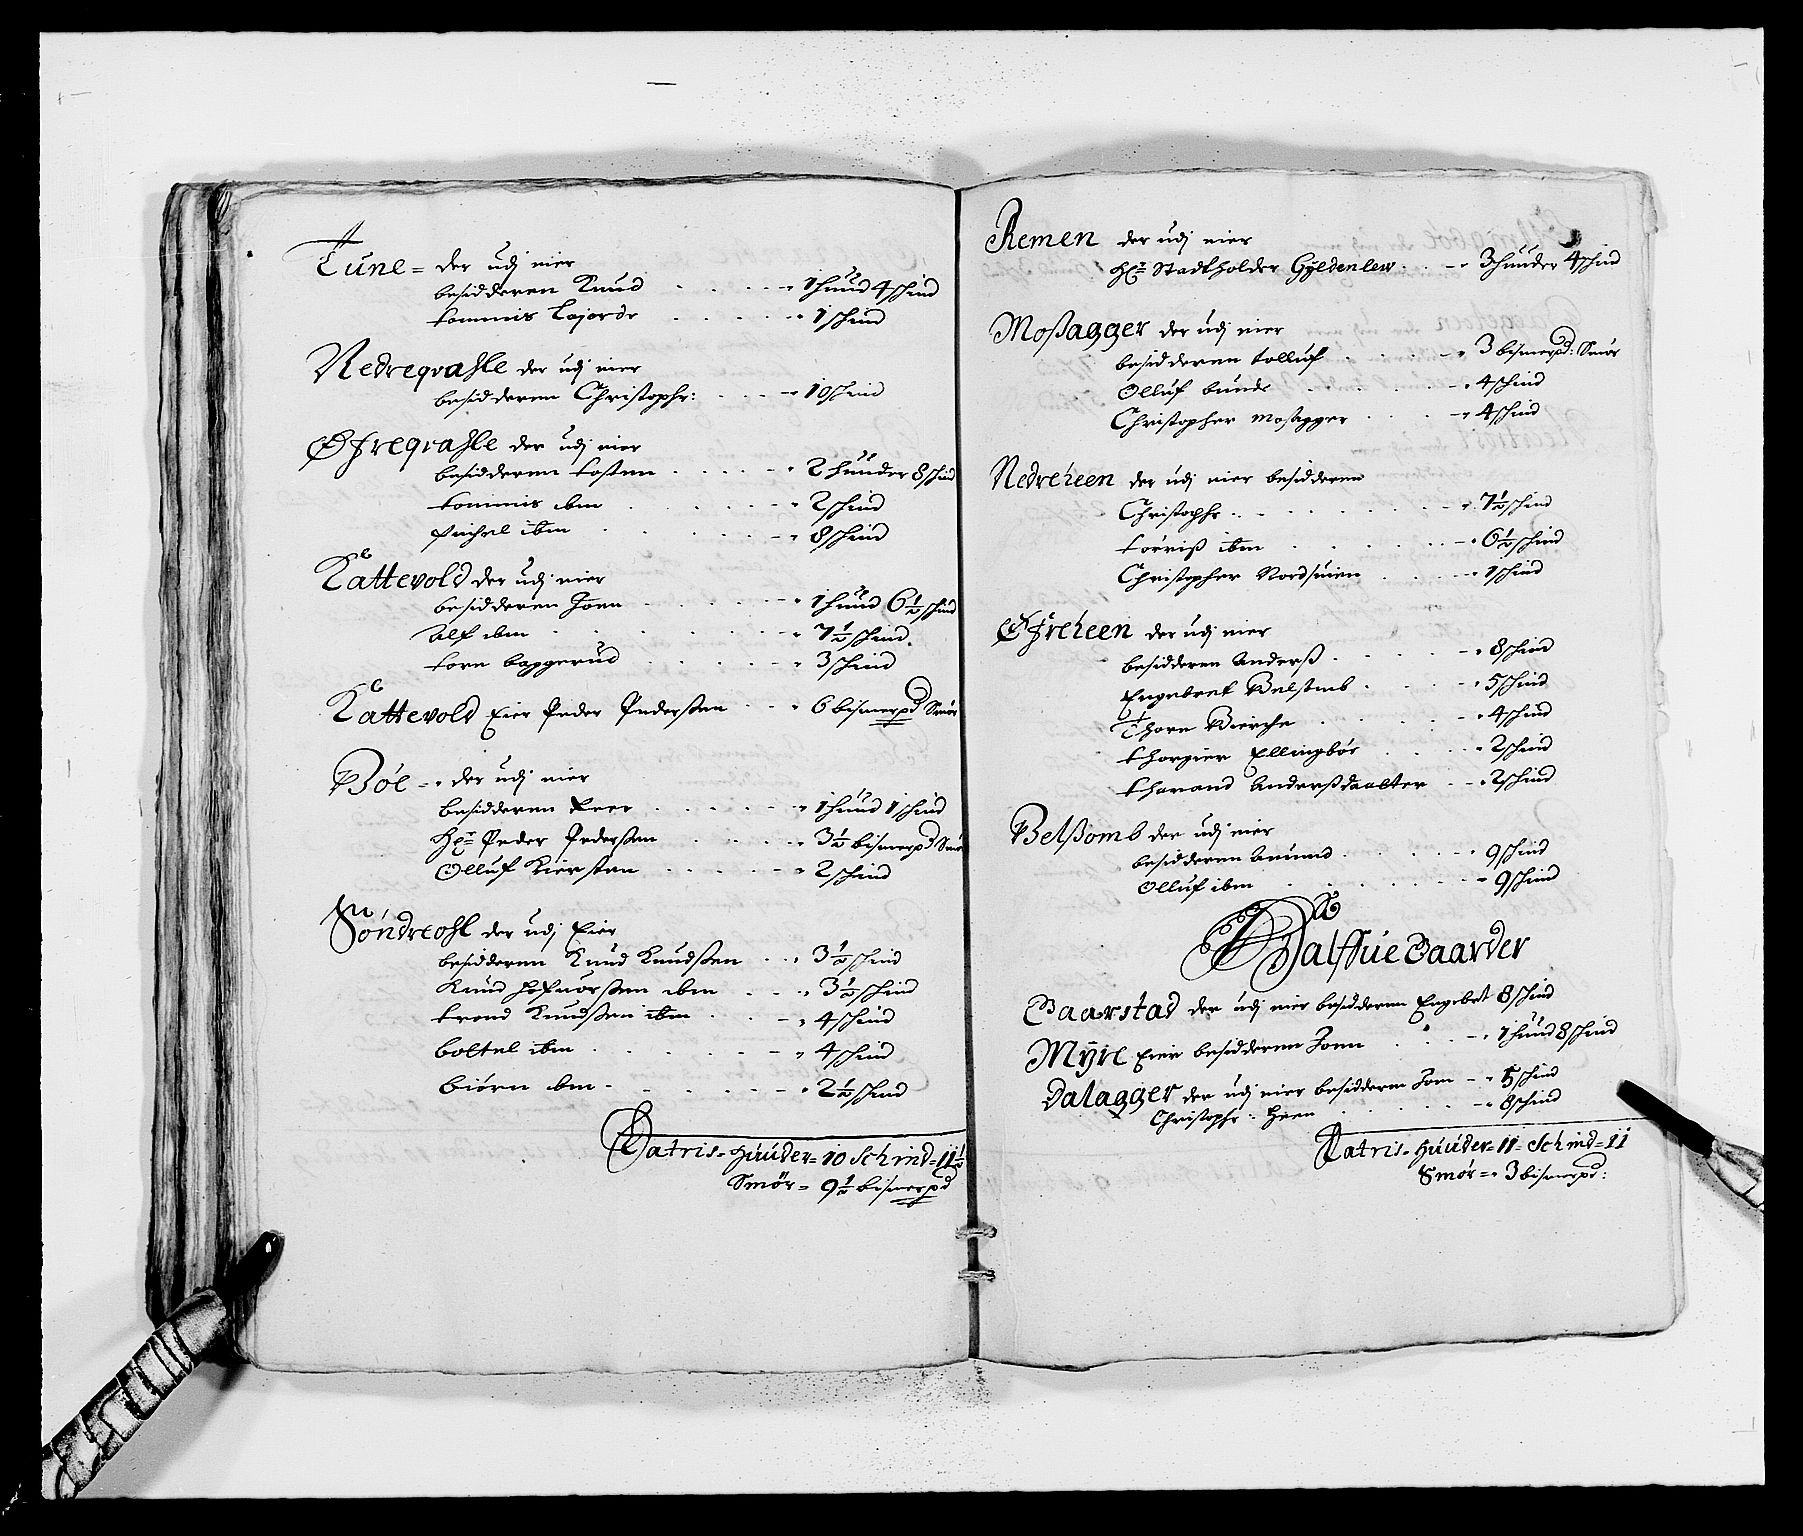 Tune = der udj eier
besidderen Knud - - - 1 huud 4 schind
tommis Lajorde - - - 1 schind
Nedreqvahle der udj eier
besidderen Christophr: - - - 10 schind
Øfreqvahle der udj eier
besidderen tosten - - - 2 huuder 8 schind
tommis ibm - - - 2 schind
Michel ibm - - - 8 schind
Kattevold der udj eier
besidderen Joen - - - 1 huud 6½ schind
Alf ibm - - - 7½ schind
tore bapgerud - - - 3 schind
Kattevold Eier Peder Pederssen - - - 6 bismerpd Smør
Bóe - der udj eier
besidderen Peer - - - 1 huud 1 schind
Hr: Peder Pederssen - - - 3½ bismerpd Smør
Olluf Kiersten - - - 2 schind
Söndreohl der udj Eier
besidderen Knud Knudssen - - - 3½ schind
Knud Hofuorssen ibm - - - 3½ schind
trond Knudssen ibm - - - 4 schind
boltel ibm - - - 4 schind
biørn ibm - - - 2½ schind
Latris = Huuder = 10 Schind = 11½
Smør = 9½ bismerpd
Remen der udj eier
Hr: Stadtholder Gyldenlew - - - 3 huuder 4 schind
Moßagger der udj eier
besidderen tolluf - - - 3 bismerpd: Smør
Olluf bunde - - - 4 schind
Christopher mosagger - - - 4 schind
Nedreheen der udj eier besidderen
Christophr - - - 7½ schind
torriß ibm - - - 6½ schind
Christopher Nordsuien - - - 1 schind
Øfreheen der udj eier
besidderen Anderß - - - 8 schind
Engebret Belstmb - - - 5 schind
Thore Bierche - - - 4 schind
thorgier Ellingbör - - - 2 schind
tharand Anderßdaatter - - - 2 schind
Belßomb der udj eier
besidderen Amund - - - 9 schind
Olluf ibm - - - 9 schind
Halffue Gaarder
Gaarstad der udj eier besidderen Engebet 8 schind
Myre Eier besidderen Joen - - - 1 huud 8 schind
Dalagger der udj eier besidderen Joen - - 5 schind
Christophr: Heen - - - 8 schind
Latris = Huuder = 11 = Schind = 11
Smør = 3 bismerpd: